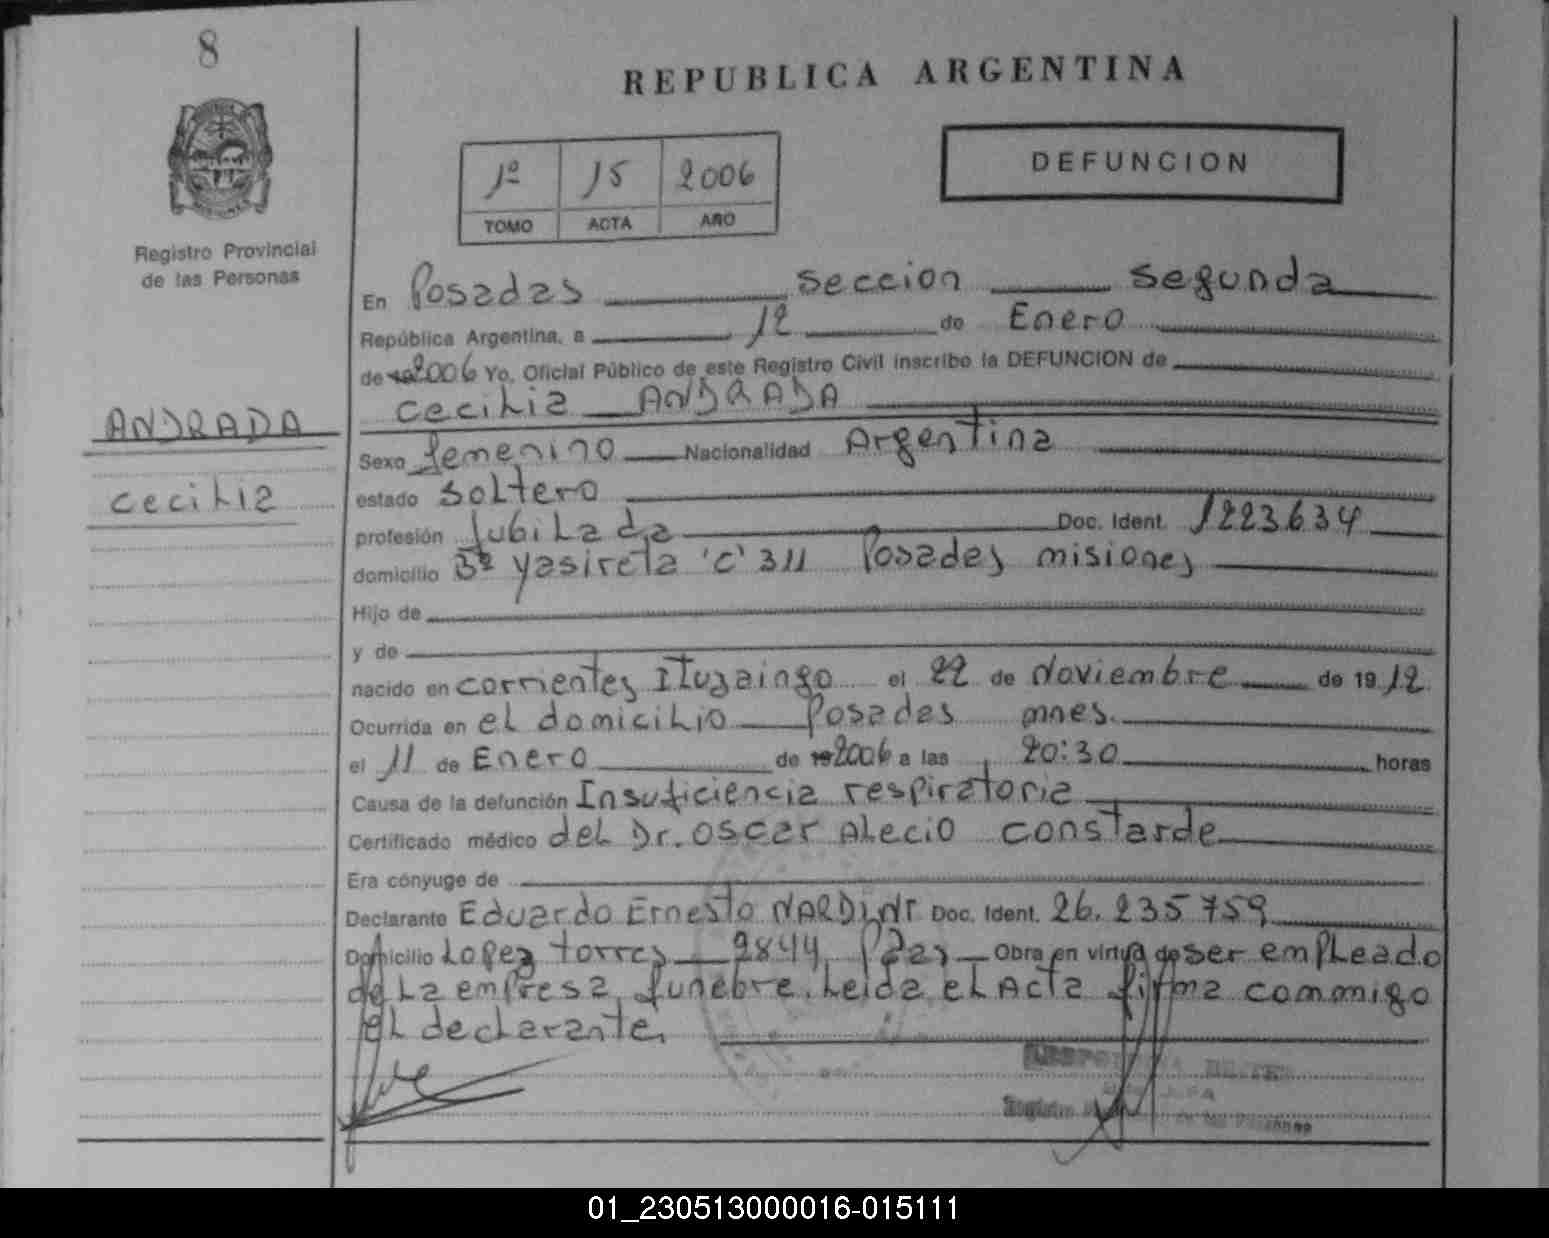 8
REPUBLICA ARGENTINA
1º 15 2006
TOMO ACTA AÑO
DEFUNCION
Registro Provincial
de las Personas
En Posadas seccion segunda
República Argentina, a 12 de Enero
de 2006 Yo, Oficial Público de este Registro Civil inscribo la DEFUNCION de
Cecilia ANDRADA
ANDRADA
Cecilia
Sexo femenino Nacionalidad Argentina
estado soltero
profesión Jubilada Doc. Ident. 1223634
domicilio Bº yasireta 'c' 311 Posadas misiones
Hijo de
y de
nacido en corrientes Ituzaingo el 22 de Noviembre de 1912
Ocurrida en el domicilio Posadas mnes.
el 11 de Enero de 2006 a las 20:30 horas
Causa de la defunción Insuficiencia respiratoria
Certificado médico del Dr. Oscar Alecio Constarde
Era cónyuge de
Declarante Eduardo Ernesto NARDINI Doc. Ident. 26.235759
Domicilio Lopez torres 2844 Pdas Obra en virtud de ser empleado
de la empresa funebre. Leida el Acta firma commigo
el declarante.
01_230513000016-015111